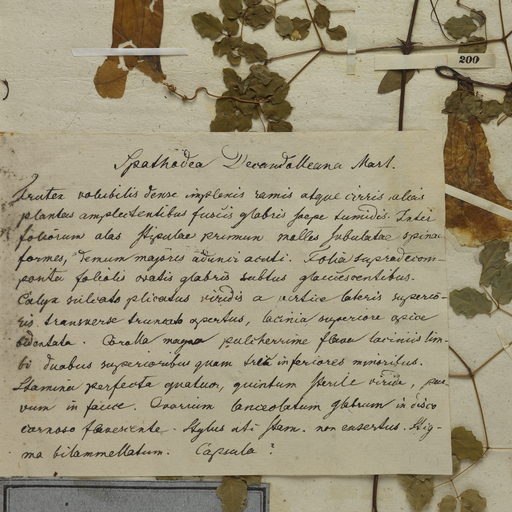 200
Spathodea Decandolleana Mart.
Frutex volubilis dense implexis ramis atque cirris alias
plantas amplectentibus fusiis glabris saepe tumidis. Inter
foliorum alas stipulae primum molles subulatae spinae
formes, demum majoris adunci acuti. Folia supradecom-
ponta foliolis ovatis glabris subtus glaucescentibus.
Calyx sulcato plicatus viridis a vertice lateris superio-
ris transverse truncato apertus, lacinia superiore apice
bidentata. Corolla magna pulcherrime flava laciniis lim-
bi duabus superioribus quam tria inferiores minoribus.
Stamina perfecta quatuor, quintum sterile viride, par-
vum in fauce. Ovarium lanceolatum glabrum in disco
carnoso flavescente. Stylus uti stam. non exsertus. Stig-
ma bilammellatum. Capsula?